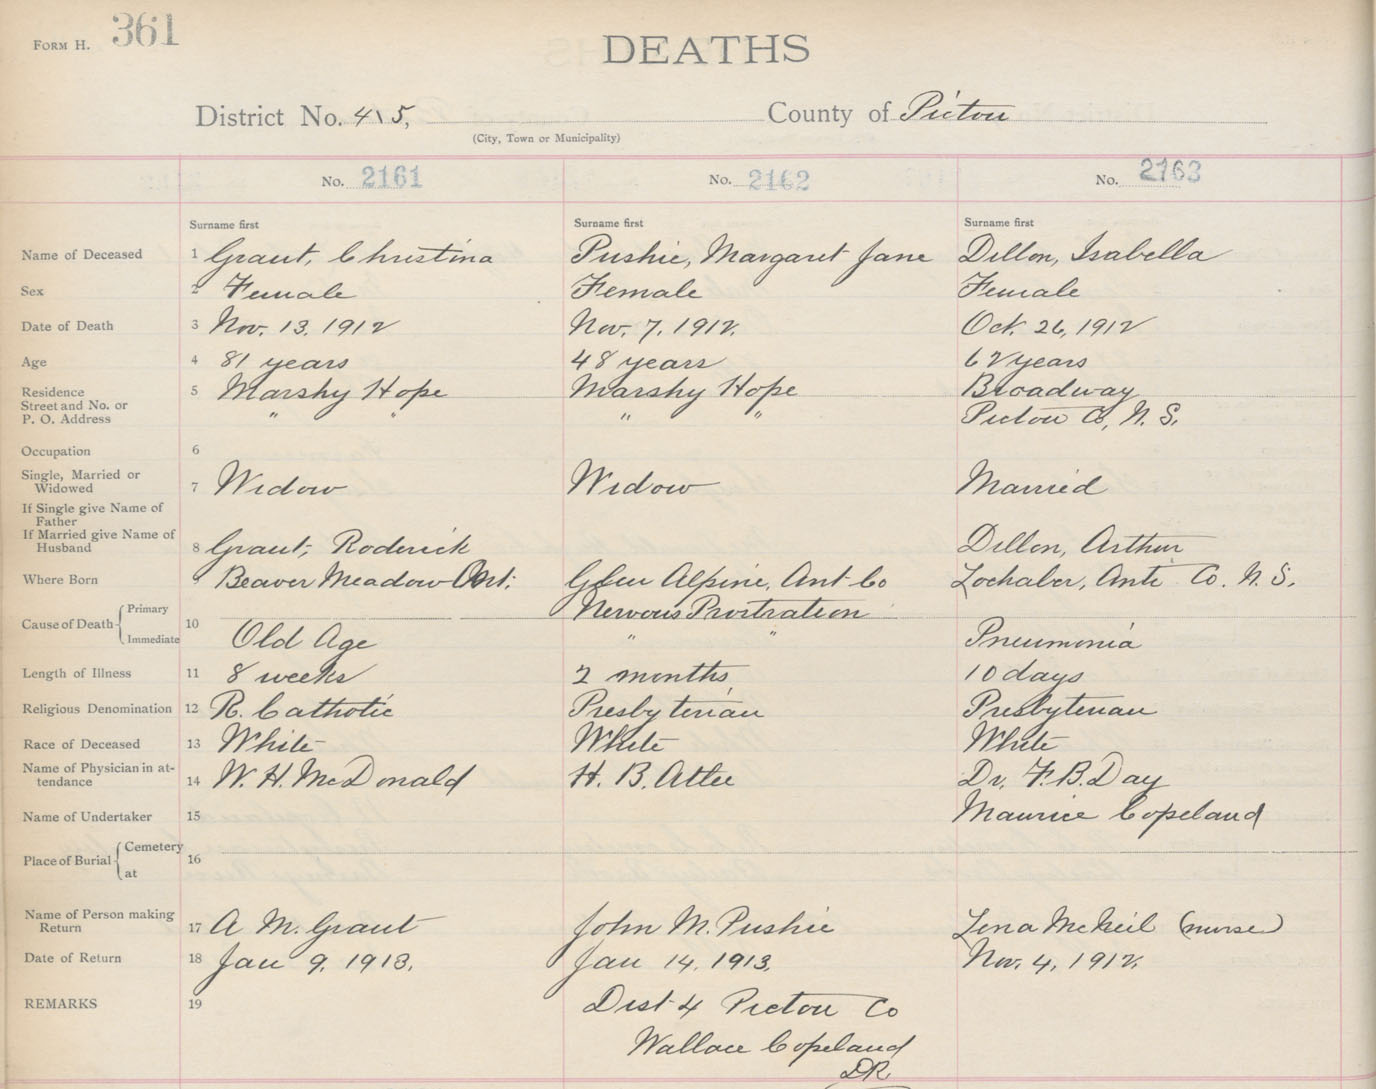 FORM H. 361
DEATHS
District No. 4\5, County of Pictou
(City, Town or Municipality)
No. 2161 No. 2162 No. 2163
Surname first Surname first Surname first
Name of Deceased 1 Grant, Christina Pushie, Margaret Jane Dillon, Isabella
Sex 2 Female Female Female
Date of Death 3 Nov. 13, 1912 Nov. 7, 1912. Oct. 26, 1912
Age 4 81 years 48 years 62 years
Residence 5 Marshy Hope Marshy Hope Broadway
Street and No. or
P. O. Address " " " " Pictou Co, N. S.
Occupation 6
Single, Married or
Widowed 7 Widow Widow Married
If Single give Name of
Father
If Married give Name of
Husband 8 Grant, Roderick Dillon, Arthur
Where Born 9 Beaver Meadow Ant. Glen Alpine, Ant Co Lochaber, Anti Co. N. S.
Cause of Death Primary Nervous Prostration
10
Immediate Old Age " " Pneumonia
Length of Illness 11 8 weeks 2 months 10 days
Religious Denomination 12 R. Catholic Presbyterian Presbyterian
Race of Deceased 13 White White White
Name of Physician in at-
tendance 14 W. H. McDonald H. B. Attee Dr. F. B. Day
Name of Undertaker 15 Maurice Copeland
Place of Burial Cemetery
16
at
Name of Person making
Return 17 A. M. Grant John M. Pushie Lena McNeil (nurse)
Date of Return 18 Jan 9, 1913. Jan 14, 1913. Nov. 4, 1912.
REMARKS 19 Dist 4 Pictou Co
Wallace Copeland
DR